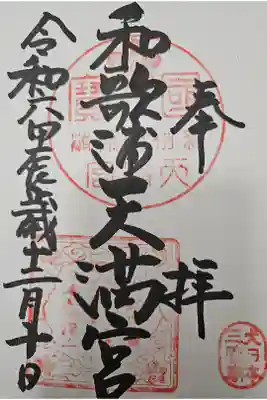 奉拝
和歌浦天満宮
令和六甲辰歳十二月十日